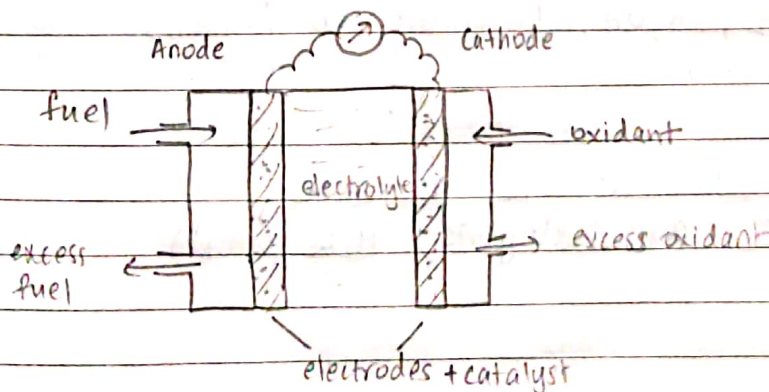 Anode
Cathode
fuel
oxidant
electrolyte
excess
fuel
excess oxidant
electrodes + catalyst